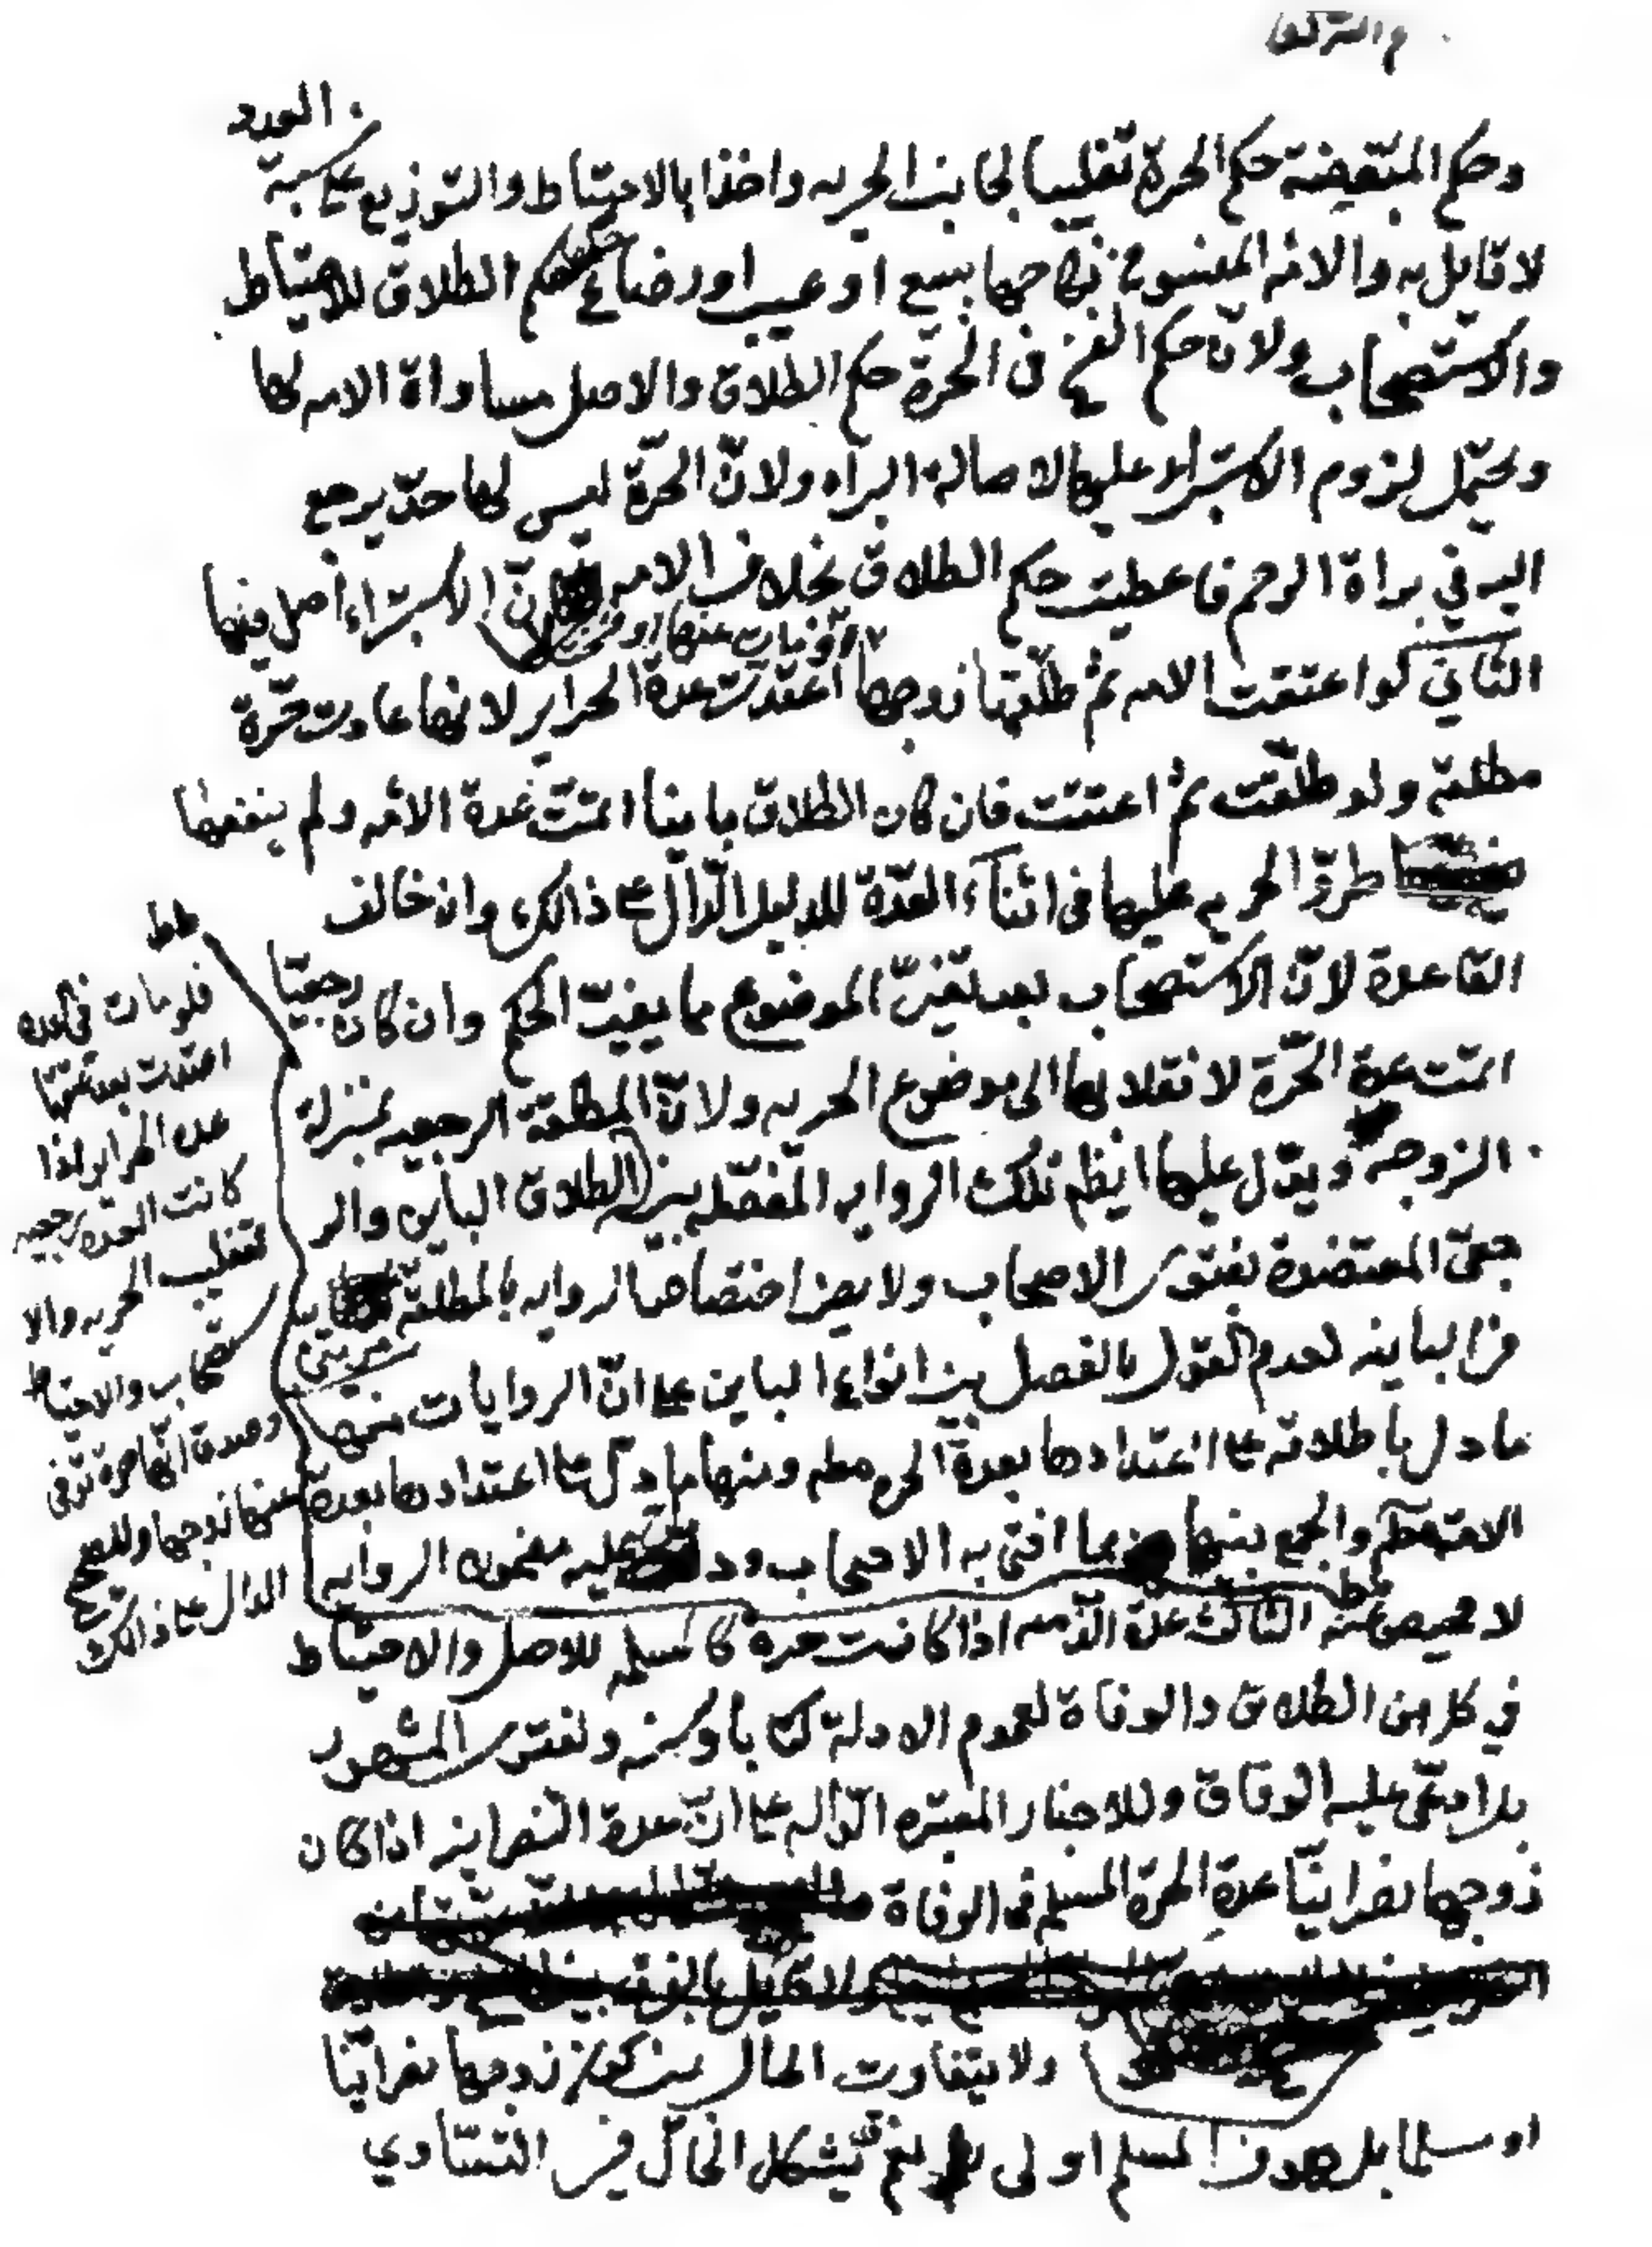 العدد
وحكم المتبعضة حكم الحرة تغليبا لجانب الحريه واخذا بالاحتياط والتوزيع على نسبة
لا قايل به والامه المفسوخ نكاحها ببيع او عيب او رضاع حكمها حكم الطلاق للاحتياط
والاستصحاب ولان حكم الفسخ في الحرة حكم الطلاق والاصل مساواة الامه لها
ويحتمل لزوم الاستبراء عليها لاصالة البراه ولانّ الحرّة ليس لها حدّ يرجع
اليه في براة الرحم فاعطيت حكم الطلاق بخلاف الامه فانّ الاستبراء اصل فيها
او توفي عنها
الثاني لو اعتقت الامه ثم طلّقها زوجها اعتدّت عدة الحراير لانها عادت حرّة
مطلقة ولو طلّقت ثم اعتقت فان كان الطلاق باينا اتمّت عدة الامه ولم ينفعها
طروّ الحريه عليها في اثناء العدّة للدليل الدّال على ذالك وان خالف
القاعدة لانّ الاستصحاب بعد تغيّر الموضوع مما يفيت الحكم وان كان رجعيّا
اتمّت عدة الحرّة لانقلابها الى موضوع الحريه ولانّ المطلقة الرجعيه بمنزلة
الزوجه ويدّل عليها ايضا تلك الروايه المفصّله بين الطلاق الباين والر
جعيّ المعتضدة بفتوى الاصحاب ولا يضر اختصاص الروايه بالمطلقة مرتين
من الباينه لعدم القول بالفصل بين انواع الباين على انّ الروايات منها
ما دل باطلاقه على اعتدادها بعدة الحره مطلقا ومنها ما دلّ على اعتدادها بعدة
الامة مطلقا والجمع بينها بما افتى به الاصحاب ودلّت عليه مضمون الروايه
لا محيص عنه الثالث عدة الذّميه اذا كانت حره كالمسلمه للاصل والاحتياط
في كل من الطلاق والوفاة لعموم الادلة كتابا وسنه ولفتوى المشهور
بل ادعّى عليه الوفاق وللاخبار المعتبره الدّاله على انّ عدة النصرانيه اذا كان
زوجها نصرانيّا عدة الحرة المسلمه في الوفاة
ولا يتفاوت الحال بين كون زوجها نصرانيّا
او مسلما بل هو في المسلم اولى نعم قد يشكل الحال في التساوي
فلو مات في العده
اعتدت بعد عتقها
عدة الحراير اذا
كانت العده رجعيه
لتغليب الحريه والا
ستصحاب والاحتياط
وصدق انّها حرة توفى
عنها زوجها وللصحيح
الدال على ذالك